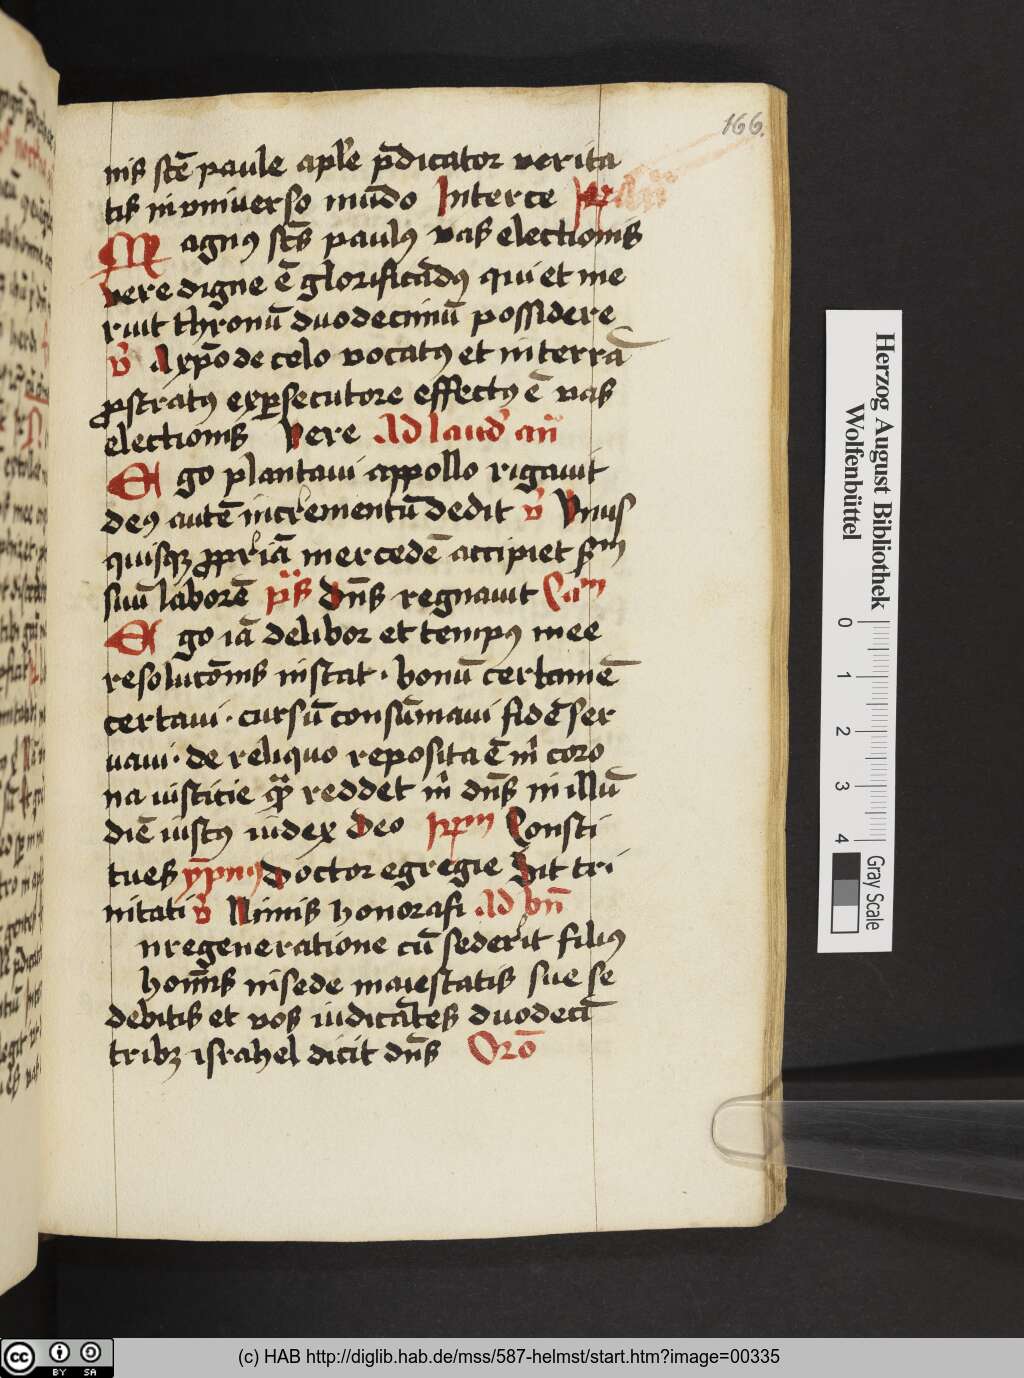 166.
nis scē paule aplē p̄dicator verita
tis in vniuerso mūdo Interce
Magnꝰ scs̄ paulꝰ vas electionis
vere digne ē glorificādꝰ qui et me
ruit thronū duodecimū possidere
v̄ A xp̄o de celo vocatꝰ et in terrā
ꝓstratꝰ ex ꝑsecutore effectꝰ ē vas
electionis Vere Ad laud̛ an̄
Ego plantaui appollo rigauit
deꝰ autē incrementū dedit v̄ Vnus
quisqꝫ ꝓpriā mercedē accipiet ẜm
suū laborē ps̄ Dn̄s regnauit Cam
Ego iā delibor et tempꝰ mee
resolucōnis instat · bonū certamē
certaui · cursū consūmaui fidē ser
uaui · de reliquo reposita ē m̄ coro
na iusticie quā reddet m̄ dn̄s in illū
diē iustꝰ iudex Deo Consti
tues ympnꝰ Doctor egregie Sit tri
nitati v̄ Nimis honorati Ad bn̄
n regeneratione cū sederit filiꝰ
homīs in sede maiestatis sue se
debitis et vos iudicātes duodecī
tribꝫ israhel dicit dn̄s Orō
Herzog August Bibliothek
Wolfenbüttel
0 1 2 3 4
Gray Scale
cc BY SA
(c) HAB http://diglib.hab.de/mss/587-helmst/start.htm?image=00335